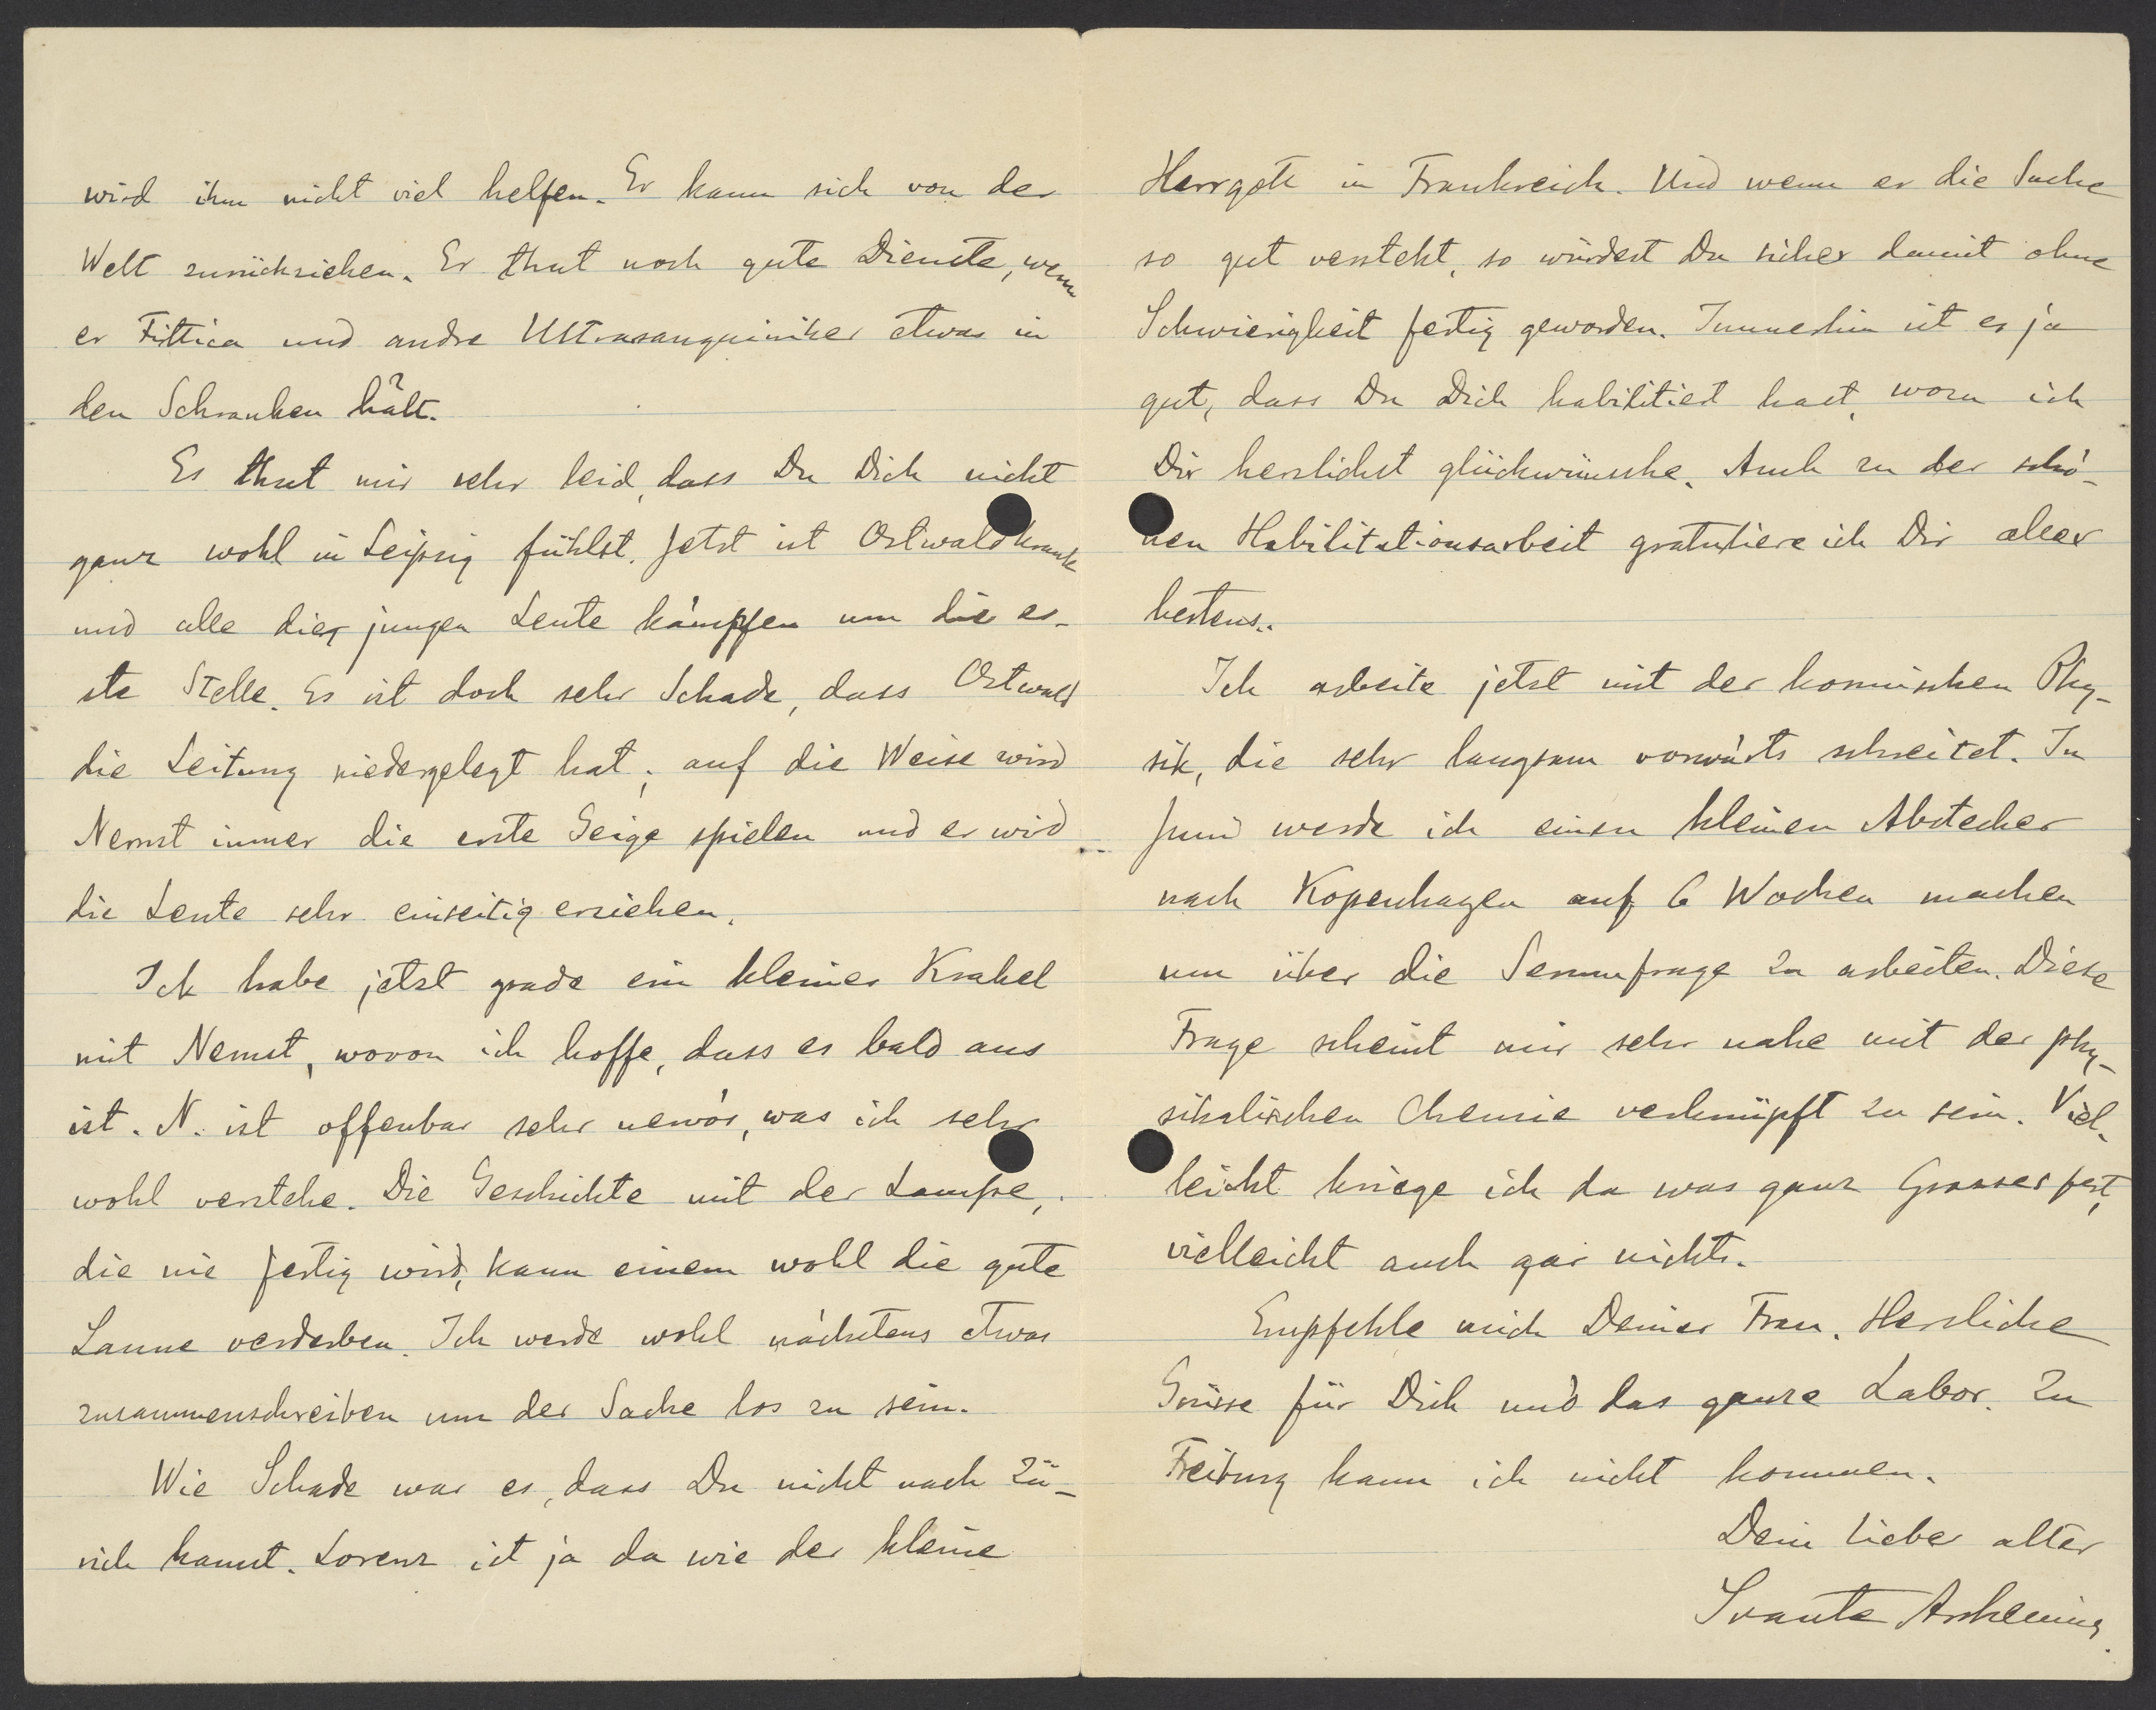 wird ihm nicht viel helfen. Er kann sich von der
Welt zurückziehen. Er thut noch gute Dienste, wenn
er Fittica und andre Ultrasanguiniker etwas in
den Schranken hält.
Es thut mir sehr leid, dass Du Dich nicht
ganz wohl in Leipzig fühlst. Jetzt ist Ostwald krank
und alle die jungen Leute kämpfen um die er-
ste Stelle. Es ist doch sehr Schade, dass Ostwald
die Leitung niedergelegt hat; auf die Weise wird
Nernst immer die erste Geige spielen und er wird
die Leute sehr einseitig erziehen.
Ich habe jetzt grade ein kleines Krakel
mit Nernst, wovon ich hoffe, dass es bald aus
ist. N. ist offenbar sehr nervös, was ich sehr
wohl verstehe. Die Geschichte mit der Lampe,
die nie fertig wird, kann einem wohl die gute
Laune verderben. Ich werde wohl nächstens etwas
zusammenschreiben um der Sache los zu sein.
Wie Schade war es, dass Du nicht nach Zü-
rich kamst. Lorenz ist ja da wie der kleine
Herrgott in Frankreich. Und wenn er die Sache
so gut versteht, so würdest Du sicher damit ohne
Schwierigkeit fertig geworden. Immerhin ist es ja
gut, dass Du Dich habilitiert hast, wozu ich
Dir herzlichst glückwünsche. Auch zu der schö-
nen Habilitationsarbeit gratuliere ich Dir aller
bestens.
Ich arbeite jetzt mit der kosmischen Phy-
sik, die sehr langsam vorwärts schreitet. In
Juni werde ich einen kleinen Abstecher
nach Kopenhagen auf 6 Wochen machen
um über die Serumfrage zu arbeiten. Diese
Frage scheint mir sehr nahe mit der phy-
sikalischen Chemie verknüpft zu sein. Viel-
leicht kriege ich da was ganz Grosses fest,
vielleicht auch gar nichts.
Empfehle mich Deiner Frau. Herzliche
Grüsse für Dich und das ganze Labor. Zu
Freiburg kann ich nicht kommen.
Dein lieber alter
Svante Arrhenius.